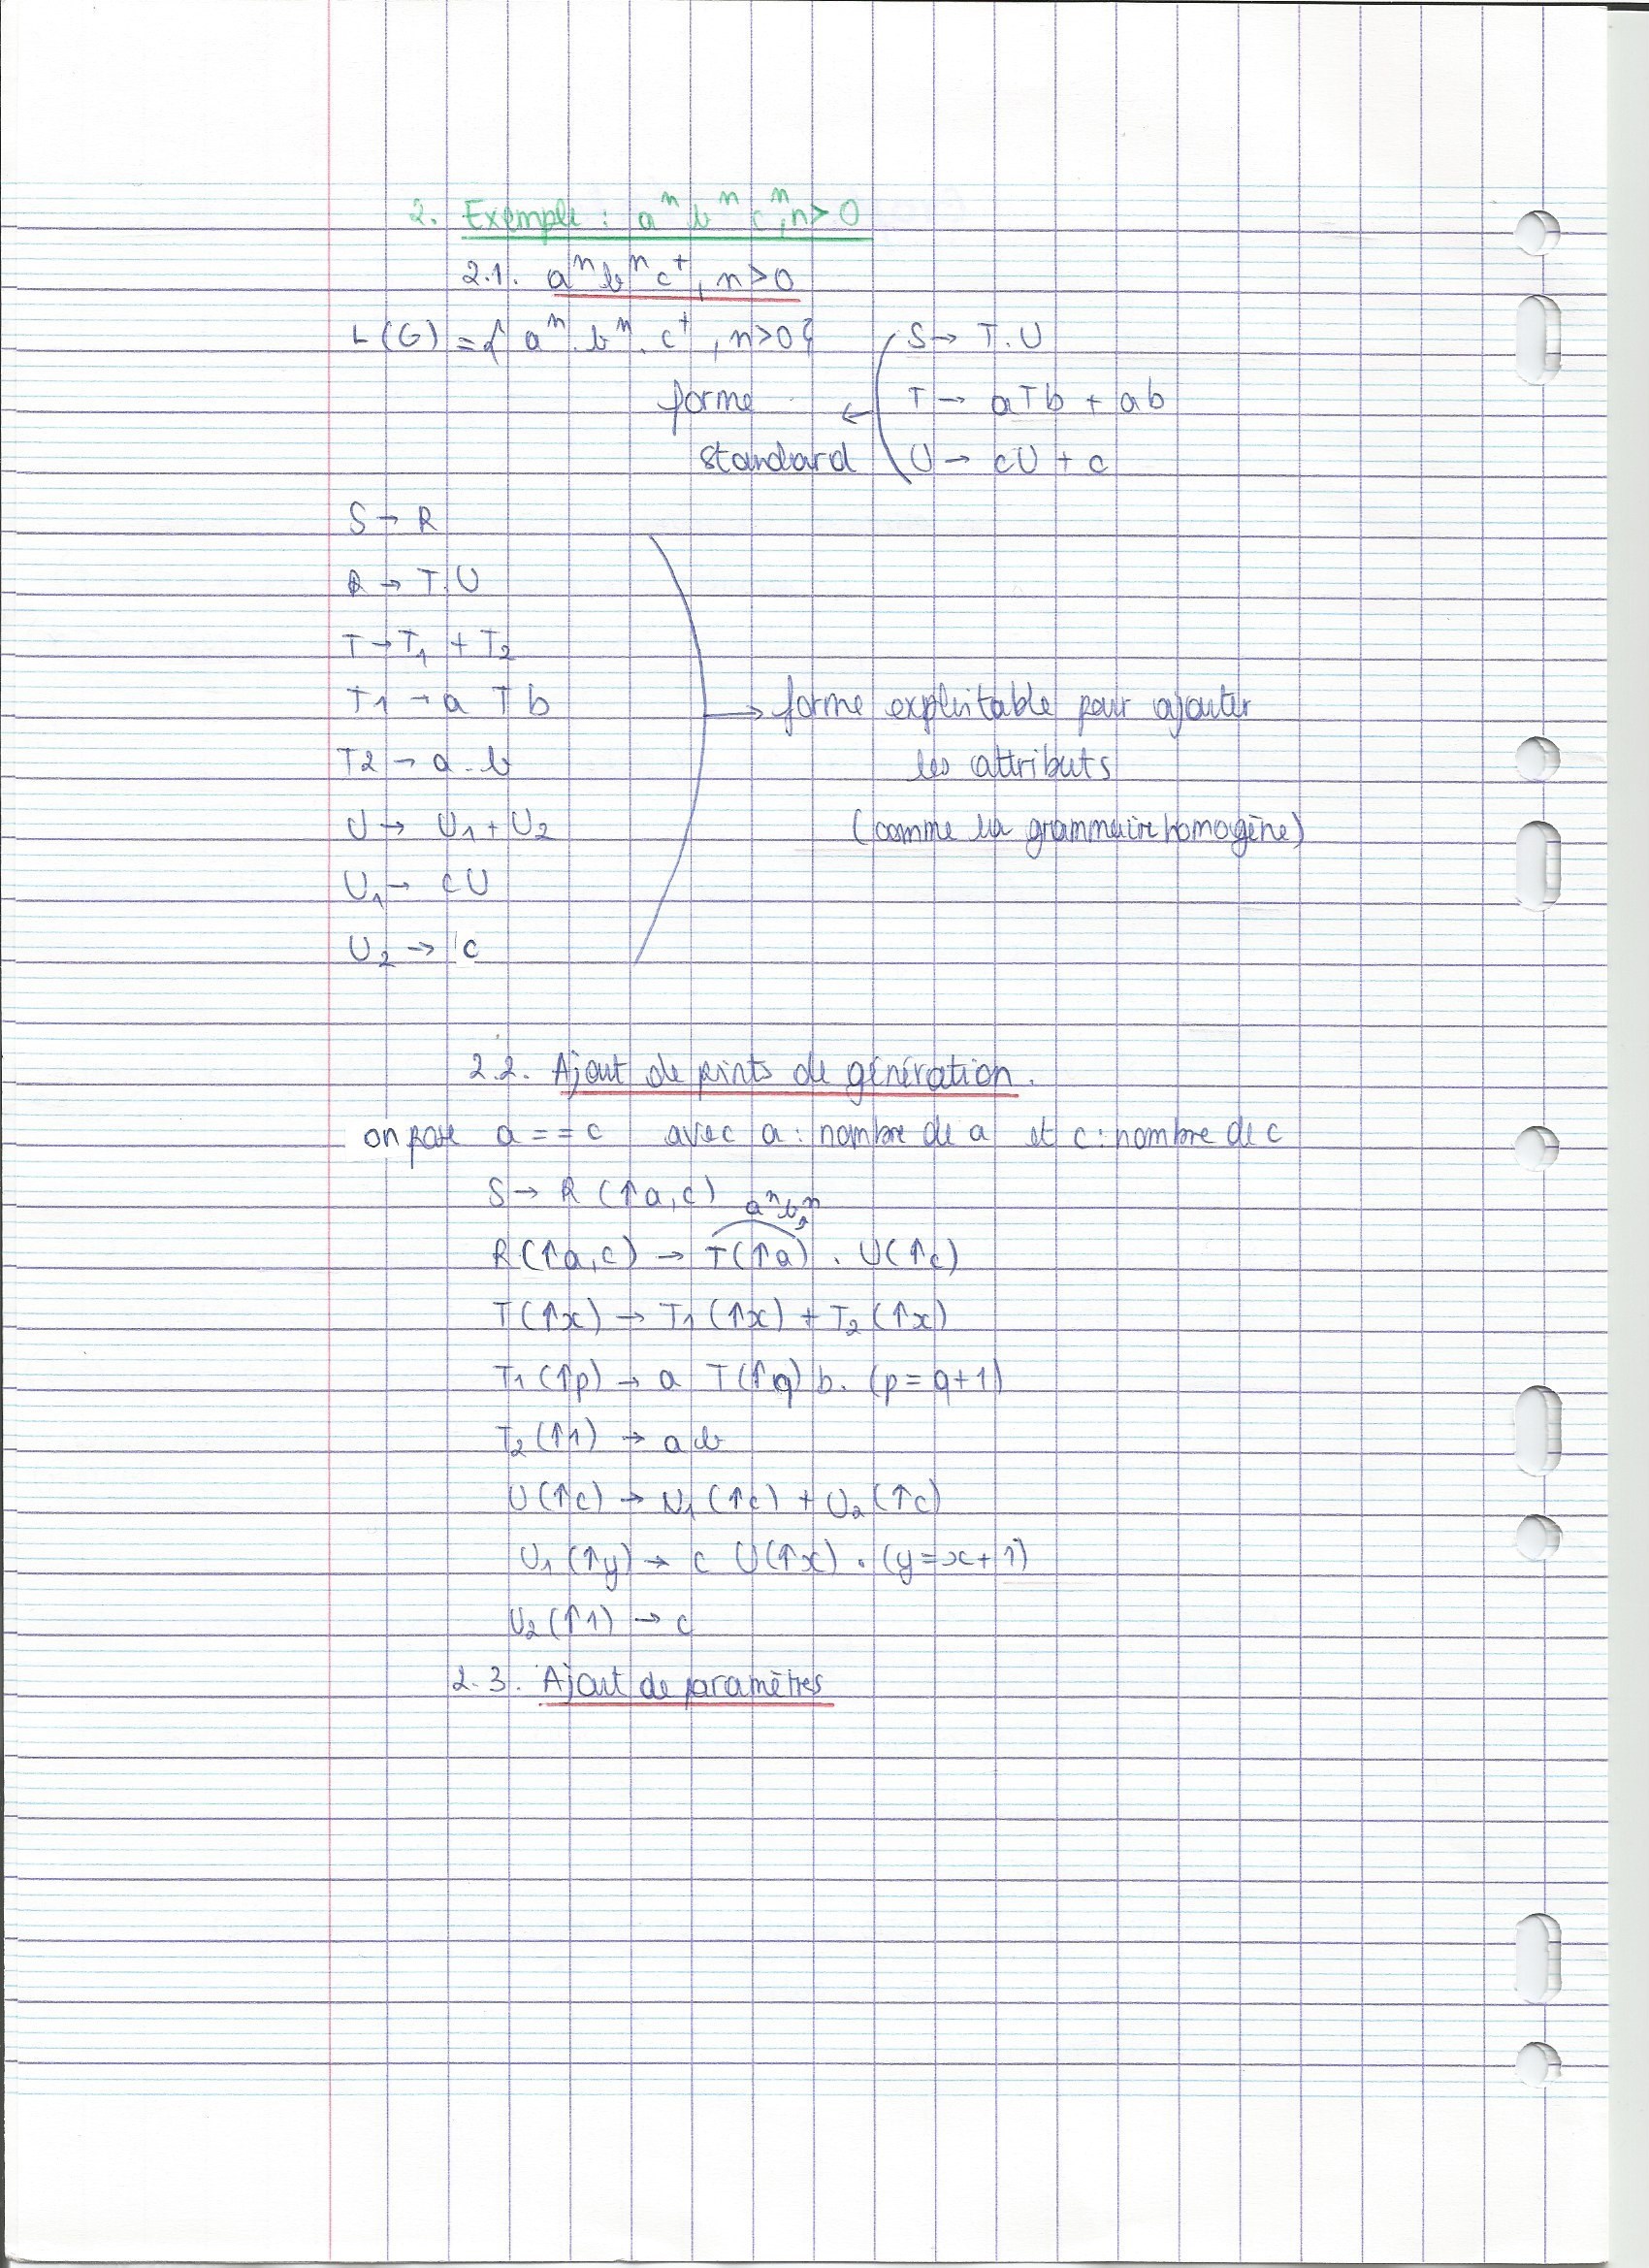 2. Exemple : aⁿ bⁿ cⁿ, n > 0
2.1. aⁿ bⁿ c⁺, n > 0
L(G) = { aⁿ . bⁿ . c⁺ , n > 0 }
S → T.U
forme ← T → aTb + ab
standard U → cU + c
S → R
R → T.U
T → T₁ + T₂
T1 → a T b → forme exploitable pour ajouter
T2 → a . b les attributs
U → U₁ + U₂ (comme la grammaire homogène)
U₁ → cU
U₂ → c
2.2. Ajout de points de génération.
on pose a == c avec a : nombre de a et c : nombre de c
S → R (↑a, c)
aⁿbⁿ
R (↑a, c) → T(↑a) . U(↑c)
T(↑x) → T₁ (↑x) + T₂ (↑x)
T₁ (↑p) → a T(↑q) b. (p = q+1)
T₂ (↑1) → ab
U (↑c) → U₁ (↑c) + U₂ (↑c)
U₁ (↑y) → c U(↑x) . (y = x + 1)
U₂ (↑1) → c
2.3. Ajout de paramètres